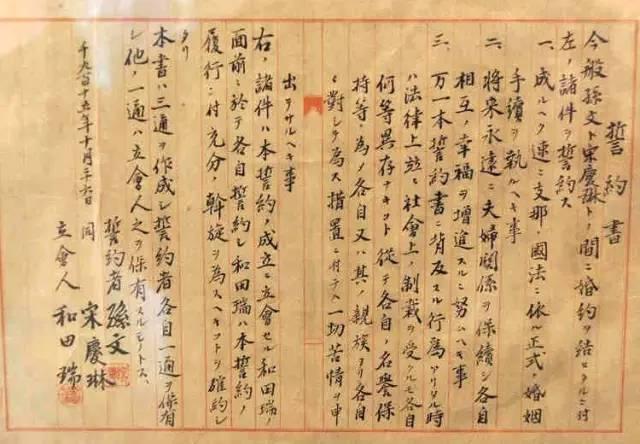 誓約書
今般孫文ト宋慶琳トノ間ニ婚約ヲ結ヒタルニ付
左ノ諸件ヲ誓約ス
一、成ルヘク速ニ支那ノ國法ニ依ル正式ノ婚姻
手續ヲ執ルヘキ事
二、將来永遠ニ夫婦関係ヲ保續シ各自
相互ノ幸福ヲ増進スルニ努ムヘキ事
三、万一本誓約書ニ背反スル行為アリタル時
ハ法律上並ニ社會上ノ制裁ヲ受クルモ各自
何等異存ナキコト從テ各自ノ名譽保
持等ノ為メ各自又ハ其ノ親族ヨリ各自
ニ對シテ為ス措置ニ付テハ一切苦情ヲ申
出テサルヘキ事
右ノ諸件ハ本誓約ノ成立ニ立會セル和田瑞ノ
面前ニ於テ各自誓約シ和田瑞ハ本誓約ノ
履行ニ付充分ノ斡旋ヲ為スヘキコトヲ確約シ
タリ
本書ハ三通ヲ作成シ誓約者各自一通ヲ保有
シ他ノ一通ハ立會人之ヲ保有スルモノトス
誓約者 孫文
同 宋慶琳
立會人 和田瑞
千九百十五年十月二十六日